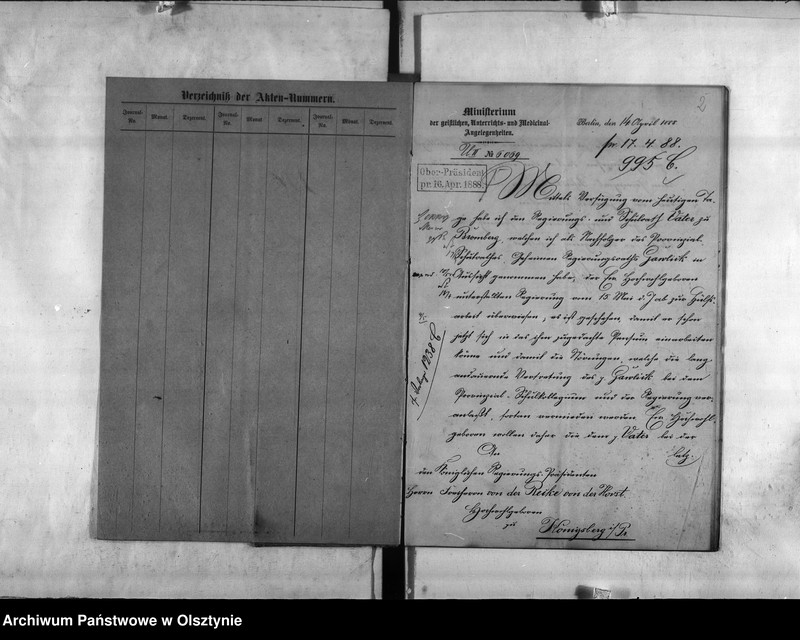 Verzeichniß der Akten-Nummern.
Journal-No. Monat. Dezernent. Journal-No. Monat. Dezernent. Journal-No. Monat. Dezernent.
2
Ministerium
der geistlichen, Unterrichts- und Medicinal-
Angelegenheiten.
Berlin, den 14 April 1888
pr. 17. 4. 88.
U II № 6069
995 C.
Ober-Präsident
pr. 16. Apr. 1888.
Mittels Verfügung vom heutigen Ta-
ge habe ich den Regierungs- und Schulrath Vater zu
Bromberg, welchen ich als Nachfolger des Provinzial-
Schulrathes, Geheimen Regierungsraths Gawlick in
Aussicht genommen habe, der Ew Hochwohlgeboren
unterstellten Regierung vom 15 Mai d. J. ab zur Hülfs-
arbeit überwiesen; es ist geschehen, damit er schon
jetzt sich in das ihm zugedachte Pensum einarbeiten
könne und damit die Störungen, welche die lang
andauernde Vertretung des p. Gawlick bei dem
Provinzial-Schulkollegium und der Regierung ver-
anlaßt, fortan vermieden werden. Ew Hochwohl-
geboren wollen daher die dem p. Vater bei der
An
den Königlichen Regierungs-Präsidenten
Herrn Freiherrn von der Recke von der Horst
Hochwohlgeboren
zu
Königsberg i/Pr.
1238 C
Archiwum Państwowe w Olsztynie